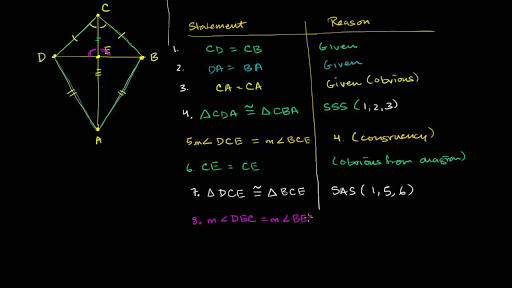 C
D
E
B
A
Statement Reason
1. CD = CB Given
2. DA = BA Given
3. CA = CA Given (obvious)
4. △CDA ≅ △CBA SSS (1,2,3)
5. m∠DCE = m∠BCE 4. (congruency)
6. CE = CE (obvious from diagram)
7. △DCE ≅ △BCE SAS (1,5,6)
8. m∠DEC = m∠BE